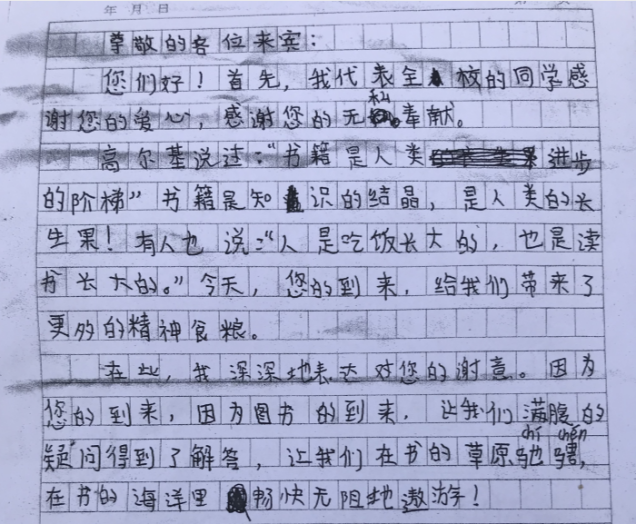 年 月 日
尊敬的各位来宾：
您们好！首先，我代表全校的同学感
谢您的爱心，感谢您的无私奉献。
高尔基说过：“书籍是人类进步
的阶梯”书籍是知识的结晶，是人类的长
生果！有人也说：“人是吃饭长大的，也是读
书长大的。”今天，您的到来，给我们带来了
更多的精神食粮。
在此，我深深地表达对您的谢意。因为
您的到来，因为图书的到来，让我们满腹的
疑问得到了解答，让我们在书的草原驰骋，
chí chěn
在书的海洋里畅快无阻地遨游！